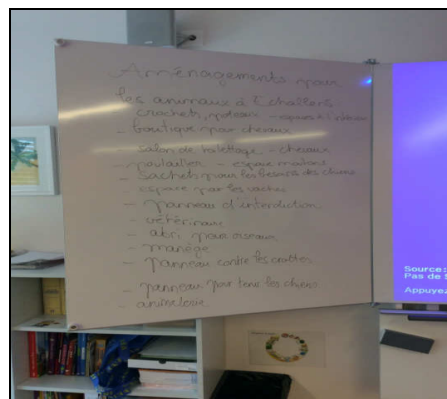 Aménagements pour
les animaux à Echallens
crochets, poteaux - espaces à l'intérieur
- boutique pour chevaux
- salon de toilettage - chevaux
- poulailler - espace
- sachets pour les besoins des chiens
espace par les vaches
- panneau d'interdiction
- vétérinaire
- abri pour oiseaux
- manège
- panneau contre les crottes
- panneau pour tenir les chiens
- animalerie
Source:
Pas de S
Appuyez